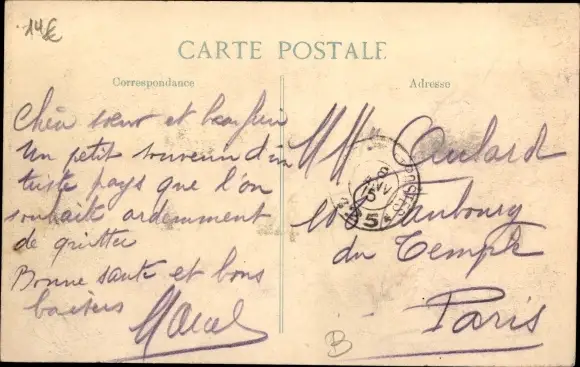 14€
CARTE POSTALE
Correspondance
Adresse
Chère sœur et beau frère
Un petit souvenir d'un
triste pays que l'on
souhaite ardemment
de quitter
Bonne santé et bons
baisers
Marcel
MM Oulard
Faubourg
du Temple
Paris
POSTES
5
B